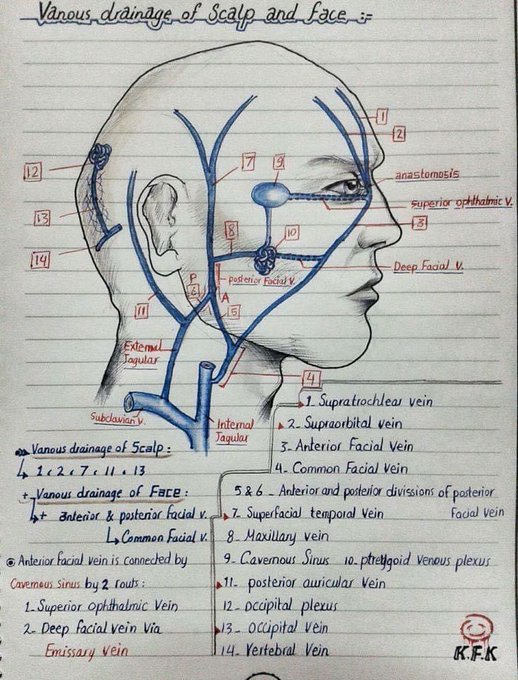 Vanous drainage of Scalp and face :-
1
2
anastomosis
superior ophthalmic V.
3
7
9
8
10
Deep Facial V.
posterior Facial V.
P
6
A
5
12
13
14
11
External
Jagular
4
Subclavian V.
Internal
Jagular
1. Supratrochlear vein
2. Supraorbital vein
3- Anterior Facial Vein
4- Common Facial Vein
5 & 6 - Anterior and posterior divissions of posterior
Facial vein
7- Superfacial temporal Vein
8- Maxillary vein
9- Cavernous Sinus 10. ptreygoid venous plexus
11- posterior auricular Vein
12- occipital plexus
13- occipital Vein
14- Vertebral Vein
Vanous drainage of Scalp :
1 , 2 , 7 , 11 , 13
+ Vanous drainage of Face :
+ anterior & posterior facial v.
Common Facial v.
Anterior facial vein is connected by
Cavernous sinus by 2 routs :
1- Superior Ophthalmic Vein
2- Deep facial vein Via
Emissary vein
K.F.K